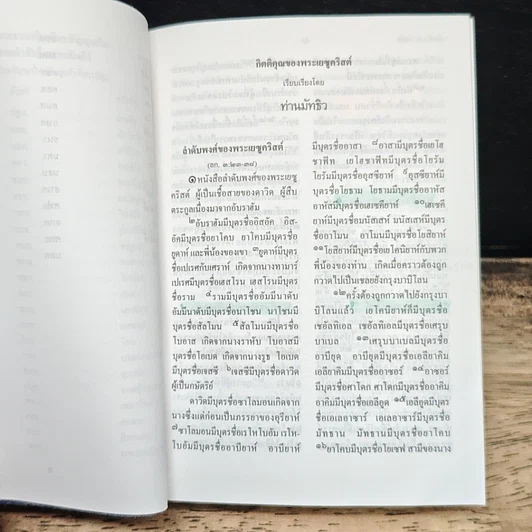 กิตติคุณของพระเยซูคริสต์
เรียบเรียงโดย
ท่านมัทธิว
ลำดับพงศ์ของพระเยซูคริสต์
(ลก. ๓:๒๓-๓๘)
๑หนังสือลำดับพงศ์ของพระเยซู
คริสต์ ผู้เป็นเชื้อสายของดาวิด ผู้สืบ
ตระกูลเนื่องมาจากอับราฮัม
๒อับราฮัมมีบุตรชื่ออิสอัค อิส-
อัคมีบุตรชื่อยาโคบ ยาโคบมีบุตรชื่อ
ยูดาห์ และพี่น้องของเขา ๓ยูดาห์มีบุตร
ชื่อเปเรศกับเศราห์ เกิดจากนางทามาร์
เปเรศมีบุตรชื่อเฮสโรน เฮสโรนมีบุตร
ชื่อราม ๔รามมีบุตรชื่ออัมมีนาดับ
อัมมีนาดับมีบุตรชื่อนาโชน นาโชนมี
บุตรชื่อสัลโมน ๕สัลโมนมีบุตรชื่อ
โบอาส เกิดจากนางราหับ โบอาสมี
บุตรชื่อโอเบด เกิดจากนางรูธ โอเบด
มีบุตรชื่อเจสซี ๖เจสซีมีบุตรชื่อดาวิด
ผู้เป็นกษัตริย์
ดาวิดมีบุตรชื่อซาโลมอนเกิดจาก
นางซึ่งแต่ก่อนเป็นภรรยาของอุรียาห์
๗ซาโลมอนมีบุตรชื่อเรโหโบอัม เรโห-
โบอัมมีบุตรชื่ออาบียาห์ อาบียาห์
มีบุตรชื่ออาสา ๘อาสามีบุตรชื่อเยโฮ
ชาฟัท เยโฮชาฟัทมีบุตรชื่อโยรัม
โยรัมมีบุตรชื่ออุสซียาห์ ๙อุสซียาห์มี
บุตรชื่อโยธาม โยธามมีบุตรชื่ออาหัส
อาหัสมีบุตรชื่อเฮเซคียาห์ ๑๐เฮเซคี
ยาห์มีบุตรชื่อมนัสเสห์ มนัสเสห์มีบุตร
ชื่ออาโมน อาโมนมีบุตรชื่อโยสิยาห์
๑๑โยสิยาห์มีบุตรชื่อเยโคนิยาห์กับพวก
พี่น้องของท่าน เกิดเมื่อคราวต้องถูก
กวาดไปเป็นเชลยยังกรุงบาบิโลน
๑๒ครั้งต้องถูกกวาดไปยังกรุงบา
บิโลนแล้ว เยโคนิยาห์ก็มีบุตรชื่อ
เชอัลทิเอล เชอัลทิเอลมีบุตรชื่อเศรุบ
บาเบล ๑๓เศรุบบาเบลมีบุตรชื่อ
อาบียุด อาบียุดมีบุตรชื่อเอลียาคิม
เอลียาคิมมีบุตรชื่ออาซอร์ ๑๔อาซอร์
มีบุตรชื่อศาโดก ศาโดกมีบุตรชื่ออาคิม
อาคิมมีบุตรชื่อเอลีอูด ๑๕เอลีอูดมีบุตร
ชื่อเอเลอาซาร์ เอเลอาซาร์มีบุตรชื่อ
มัทธาน มัทธานมีบุตรชื่อยาโคบ
๑๖ยาโคบมีบุตรชื่อโยเซฟ สามีของนาง